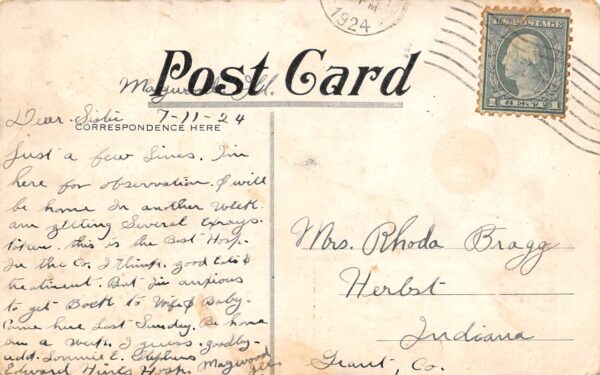 1924
PM
U.S. POSTAGE
1 CENT 1
Post Card
Maywood Ill.
7-11-24
CORRESPONDENCE HERE
Dear Sister
Just a few Lines. I'm
here for observation. I will
be home In another Week.
am getting Several Exrays.
taken. this is the Best Hosp.
In the Co, I think, good Eats &
treatment. But I'm anxious
to get Back to Wife & Baby.
Came here Last Sunday. Be home
in a Week, I guess. goodby-
add. Lonnie E. Stephens
Edward Hines Hosp. Maywood
Ills
Mrs. Rhoda Bragg
Herbst
Indiana
Grant, Co.